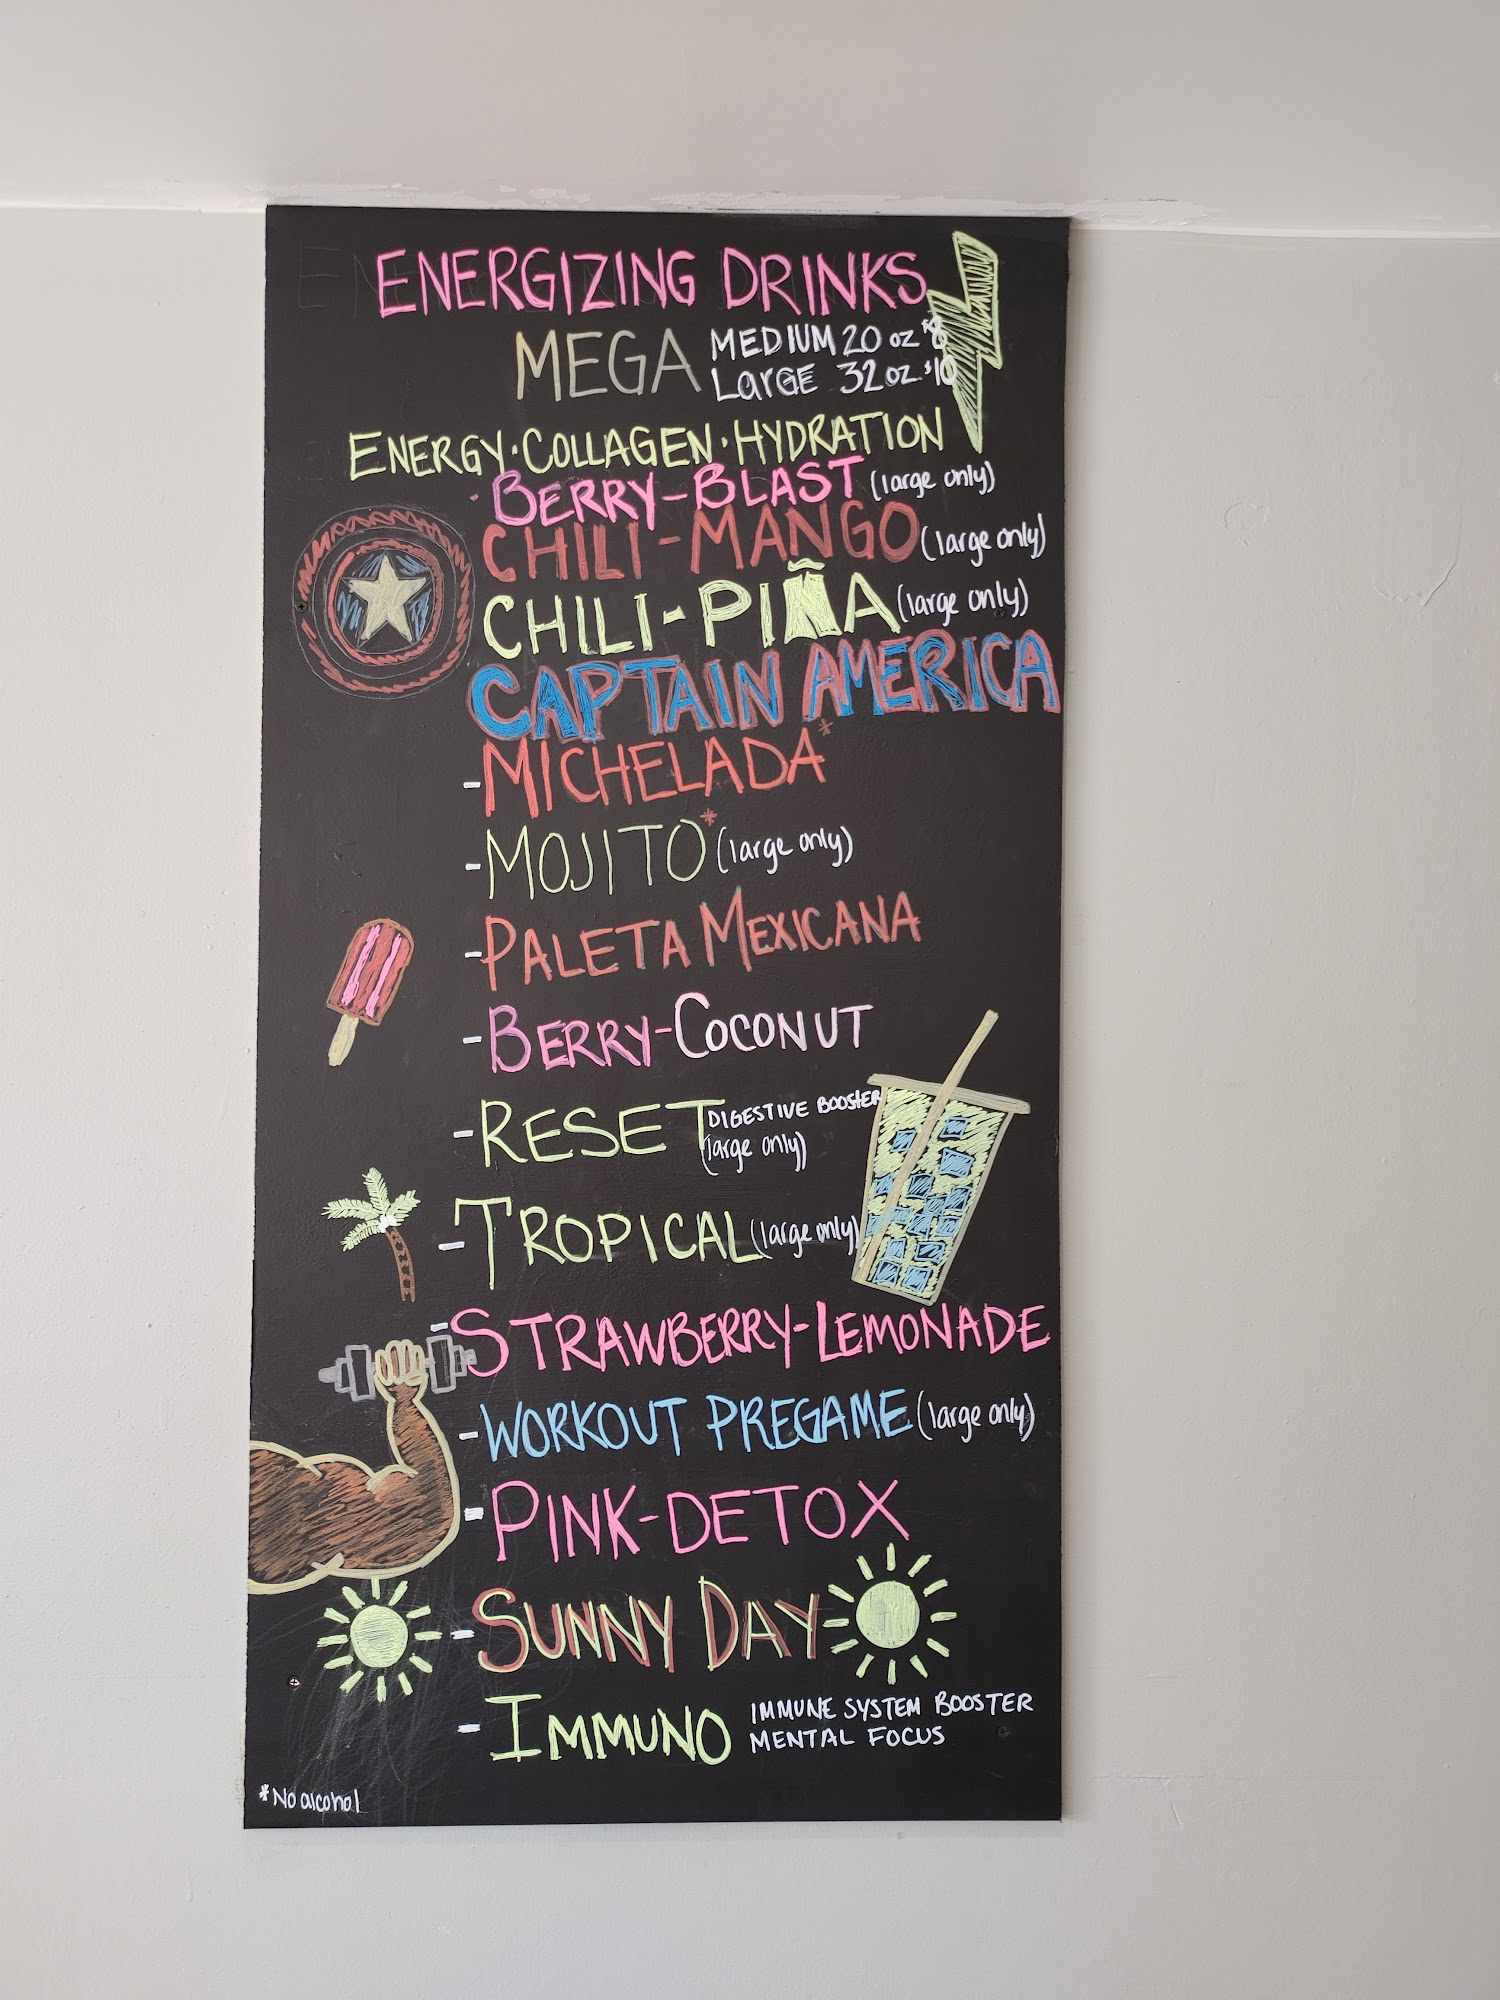 ENERGIZING DRINKS
MEGA MEDIUM 20 oz $8
LARGE 32 oz. $10
ENERGY · COLLAGEN · HYDRATION
· BERRY-BLAST (large only)
CHILI-MANGO (large only)
CHILI-PIÑA (large only)
CAPTAIN AMERICA
- MICHELADA*
- MOJITO* (large only)
- PALETA MEXICANA
- BERRY-COCONUT
- RESET DIGESTIVE BOOSTER
(large only)
- TROPICAL (large only)
- STRAWBERRY-LEMONADE
- WORKOUT PREGAME (large only)
- PINK-DETOX
- SUNNY DAY
- IMMUNO IMMUNE SYSTEM BOOSTER
MENTAL FOCUS
*No alcohol